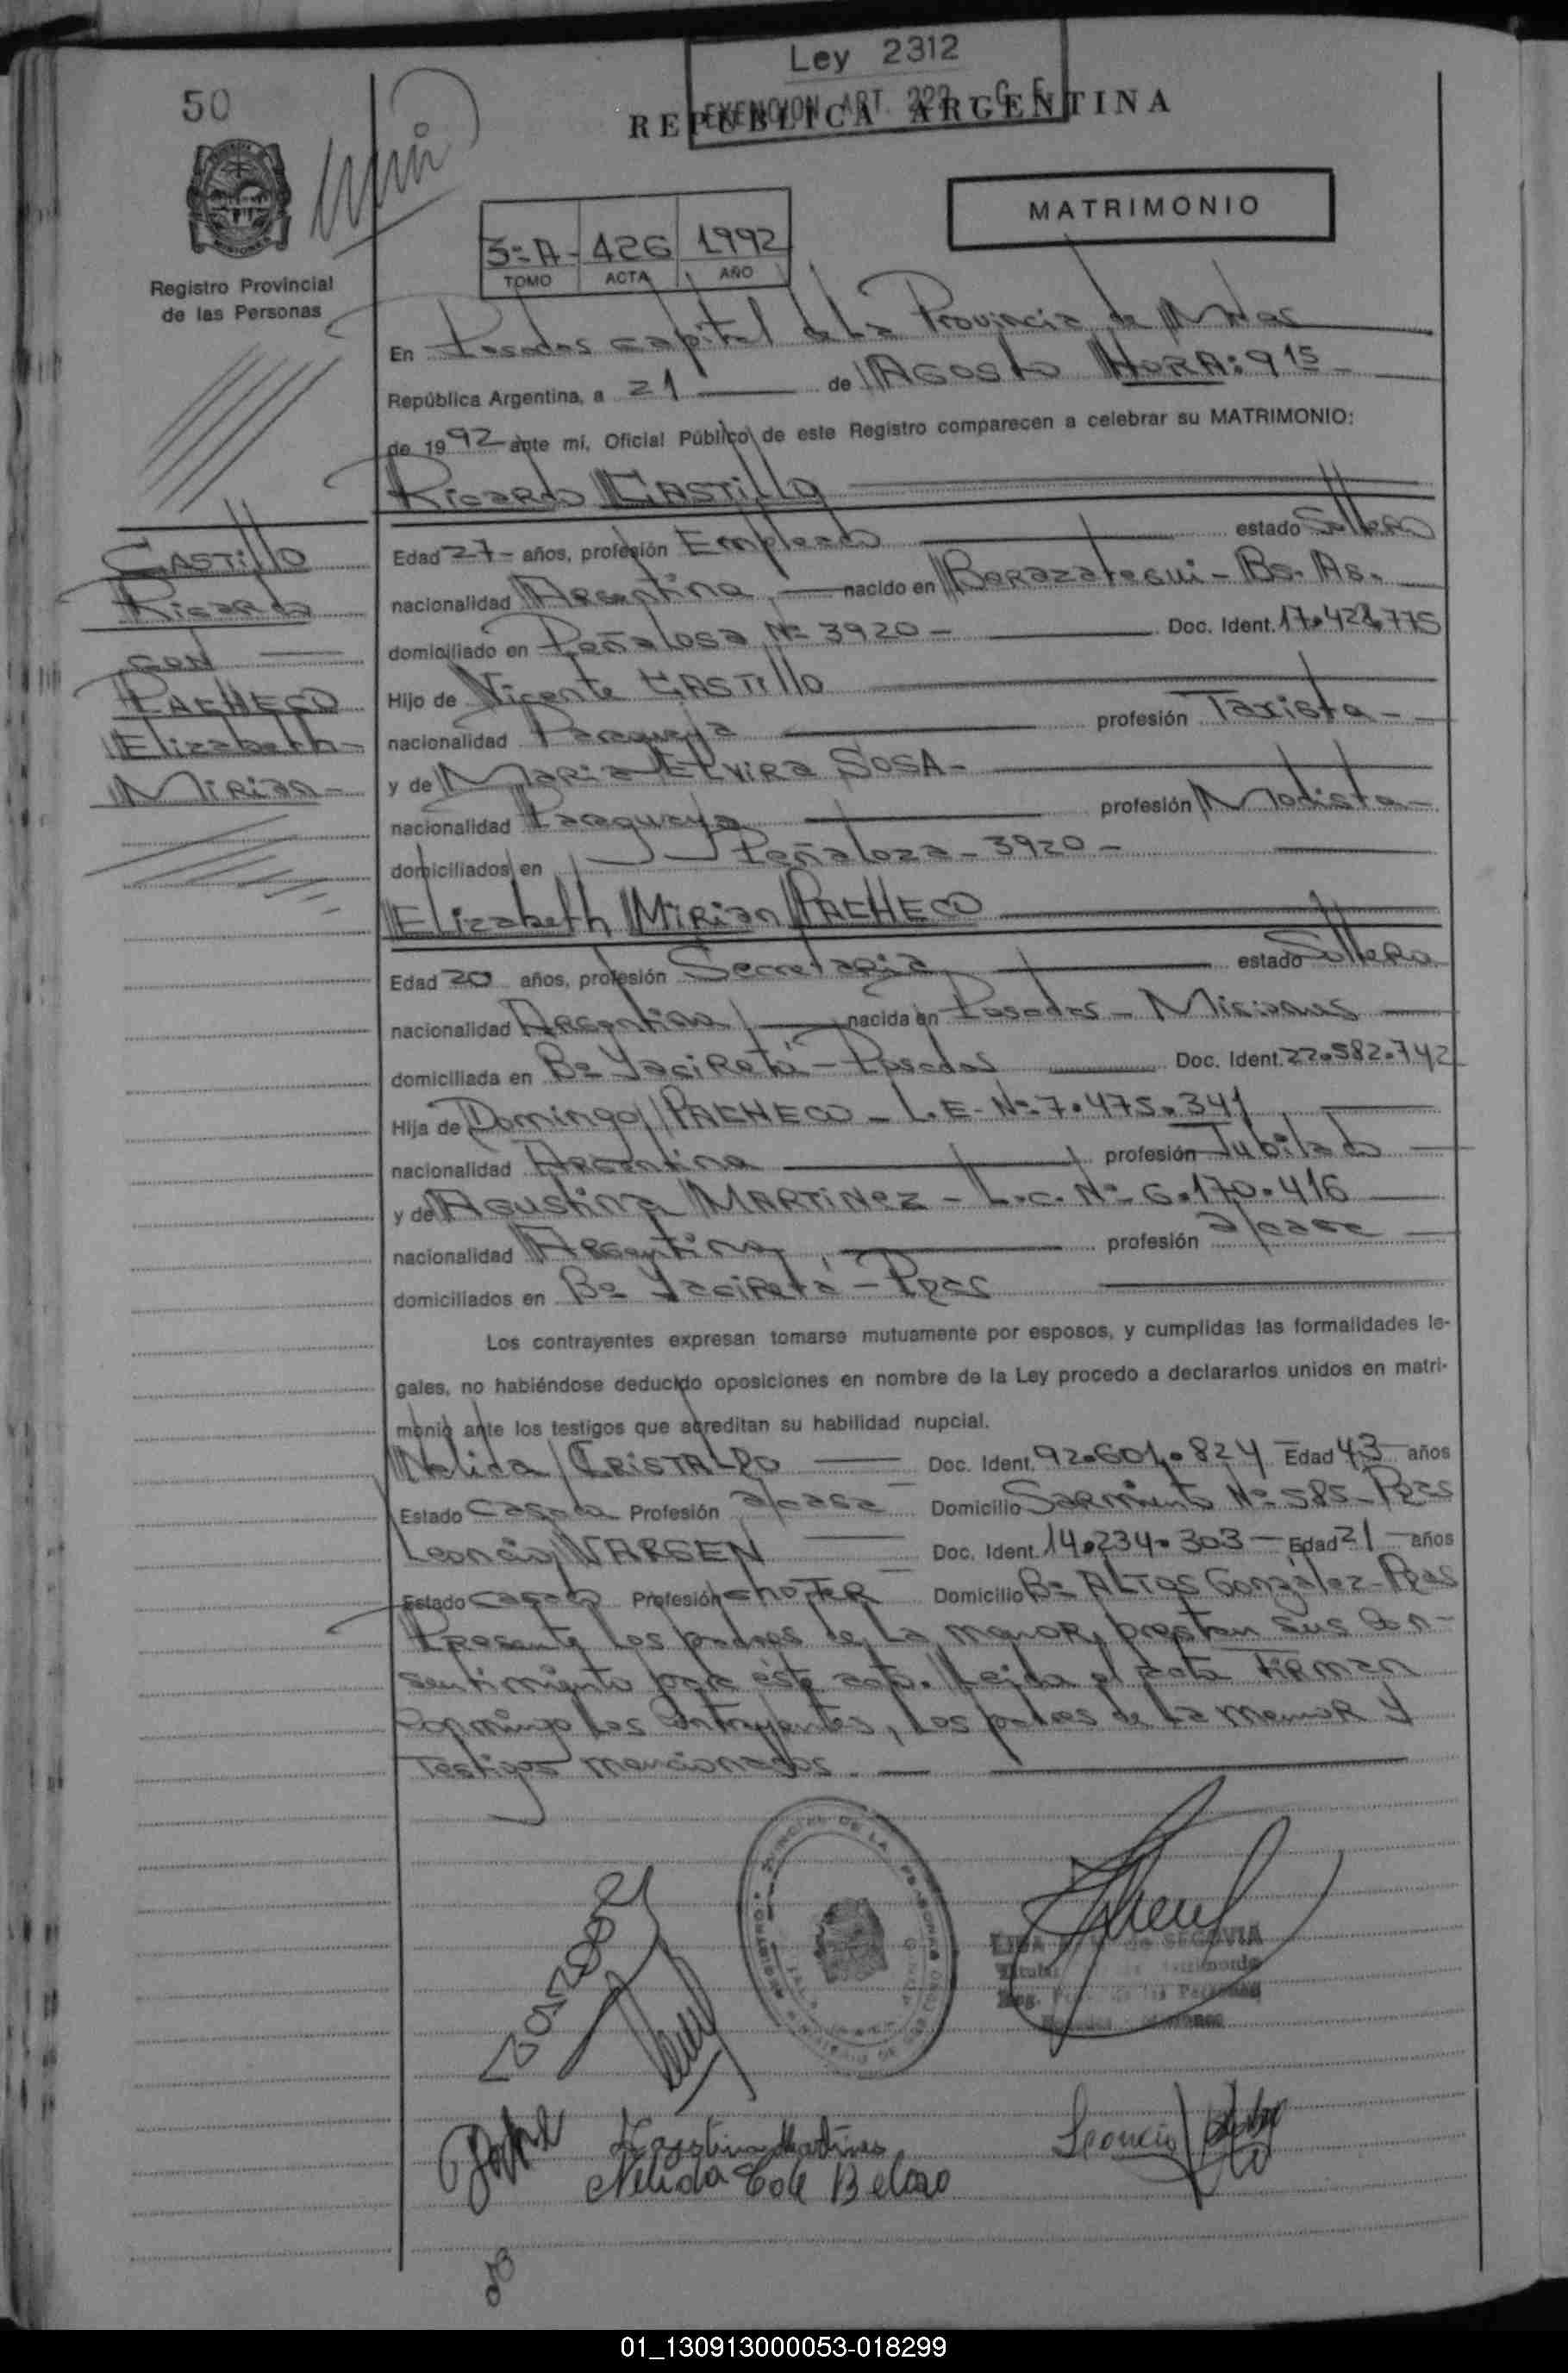 Ley 2312
EXENCION ART. 222 - C. F.
50
REPUBLICA ARGENTINA
MATRIMONIO
3º A - 426 1992
TOMO ACTA AÑO
Registro Provincial
de las Personas
En Posadas capital de La Provincia de Mnes
República Argentina, a 21 de AGosto HORA: 9 15
de 1992 ante mí, Oficial Público de este Registro comparecen a celebrar su MATRIMONIO:
Ricardo CASTillo
CASTillo
Ricardo
CON
PACHECO
Elizabeth
Mirian
Edad 27 años, profesión Empleado estado Soltero
nacionalidad Argentina nacido en Berazategui - Bs. As.
domiciliado en Peñalosa Nº 3920 - Doc. Ident. 17.428.775
Hijo de Vicente CASTillo
nacionalidad Paraguaya profesión Taxista -
y de Maria Elvira SOSA -
nacionalidad Paraguaya profesión Modista -
domiciliados en Peñaloza - 3920 -
Elizabeth Mirian PACHECO
Edad 20 años, profesión Secretaria estado Soltera
nacionalidad Argentina nacida en Posadas - Misiones
domiciliada en Bº Yaciretá - Posadas Doc. Ident. 22.582.742
Hija de Domingo PACHECO - L.E. Nº 7.475.341
nacionalidad Argentina profesión Jubilado
y de Agustina MARTINez - L.C. Nº 6.170.416
nacionalidad Argentina profesión a/casa
domiciliados en Bº Yaciretá - Pdas
Los contrayentes expresan tomarse mutuamente por esposos, y cumplidas las formalidades le-
gales, no habiéndose deducido oposiciones en nombre de la Ley procedo a declararlos unidos en matri-
monio ante los testigos que acreditan su habilidad nupcial.
Nelida CRISTALDO Doc. Ident. 92.601.824 Edad 43 años
Estado Casada Profesión a/casa Domicilio Sarmiento Nº 585 - Pdas
Leoncio VARGEN Doc. Ident. 14.234.303 Edad 21 años
Estado Casado Profesión choFER Domicilio Bº ALTOS González - Pdas
Presente los padres de La menor, prestan sus Con-
sentimiento para éste acto. Leída el acta FIRMAN
Conmigo Los Contrayentes, Los padres de La menor y
Testigos mencionados.
SEGOVIA
Agustina Martines
Nelida
Leoncio
01_130913000053-018299